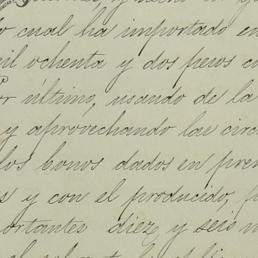 o cual ha importado en
mil ochenta y dos pesos c
or último, usando de la
y aprovechando las circ
los bonos dados en pren
s y con el producido, p
portantes diez y seis m